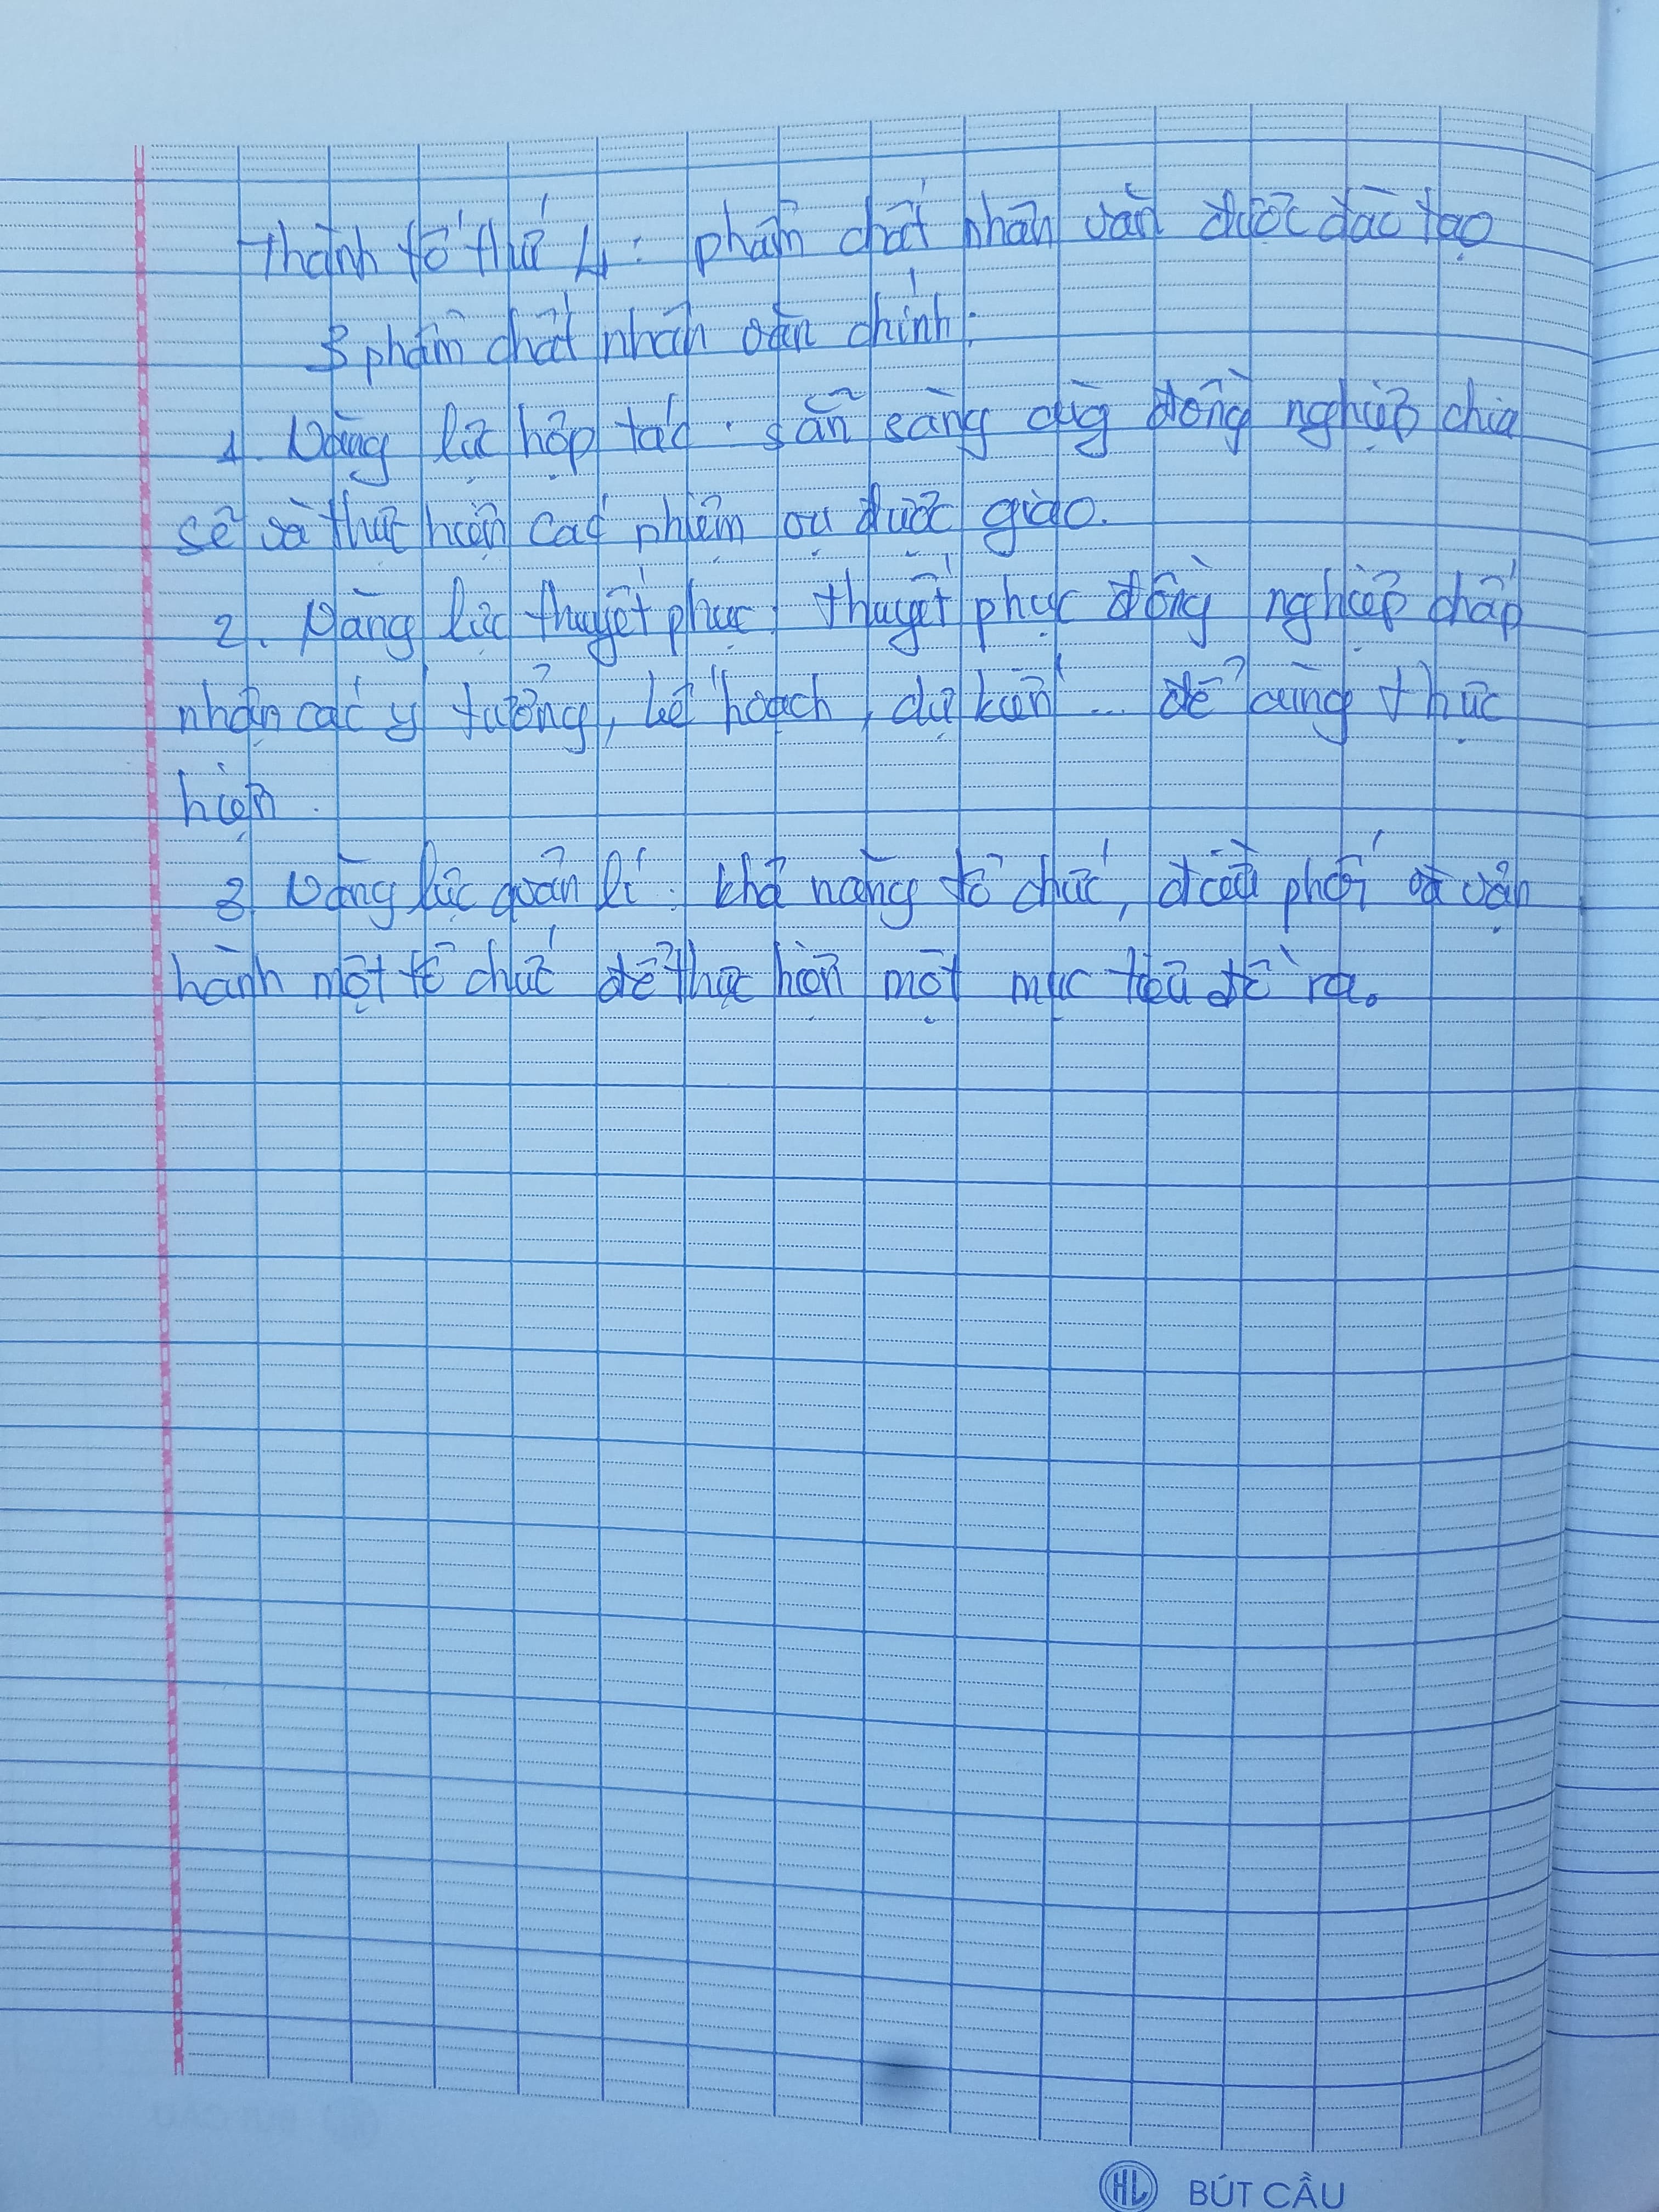 Thành tố thứ 4: phẩm chất nhân văn được đào tạo
3 phẩm chất nhân văn chính:
1. Năng lực hợp tác: sẵn sàng cùng đồng nghiệp chia
sẻ và thực hiện các nhiệm vụ được giao.
2. Năng lực thuyết phục: thuyết phục đồng nghiệp chấp
nhận các ý tưởng, kế hoạch, dự kiến ... để cùng thực
hiện.
3. Năng lực quản lí: khả năng tổ chức, điều phối và vận
hành một tổ chức để thực hiện một mục tiêu đề ra.
HL BÚT CẦU